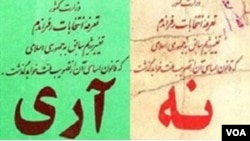 وزارت کشور
تعرفه انتخابات رفراندم
تغییر رژیم سابق به جمهوری اسلامی
که قانون اساسی آن از تصویب ملت خواهد گذشت.
آری
وزارت کشور
تعرفه انتخابات رفراندم
تغییر رژیم سابق به جمهوری اسلامی
که قانون اساسی آن از تصویب ملت خواهد گذشت.
نه
VOA